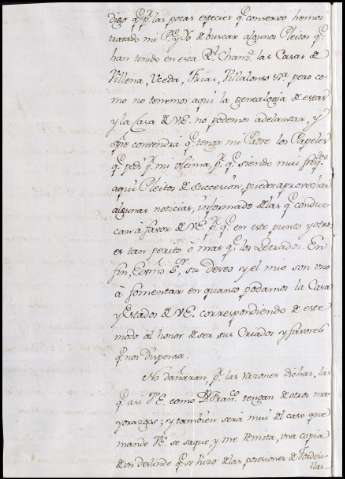 digo qe pr las pocas especies qe conservo hemos
tratado mi Pe y Yo de buscar algunos Pleitos qe
han tenido en esta Rl Chanza las Casas de
Villena, Uceda, Frias, Villalonso &a pero co
mo no tenemos aqui la genealogia de estas
y la Casa de VE. no podemos adelantar, y
asi convendrá qe tenga mi Padre los Papeles
qe pod pr mi oficina, pr qe siendo mui freqtes
aqui Pleitos de Succesion, puedo aprovechar
algunas noticias, informado de las qe conduz-
can á favor de VE pr qe en este punto
es tan perito ó mas qe los Letrados. En
fin, Exmo Sr, su deseo y el mio son
á fomentar en quanto podamos la Casa
y Estados de VE. correspondiendo de este
modo al honor de ser sus Criados y favores
qe nos dispensa.
No dañaran, pr las razones dichas, las
qe asi VE. como Dn Franco tengan de estos ma-
yorazgos; y tambien será mui del caso que
mande VE se saque, y me remita, una copia
del deslinde qe se hizo de las posesiones de